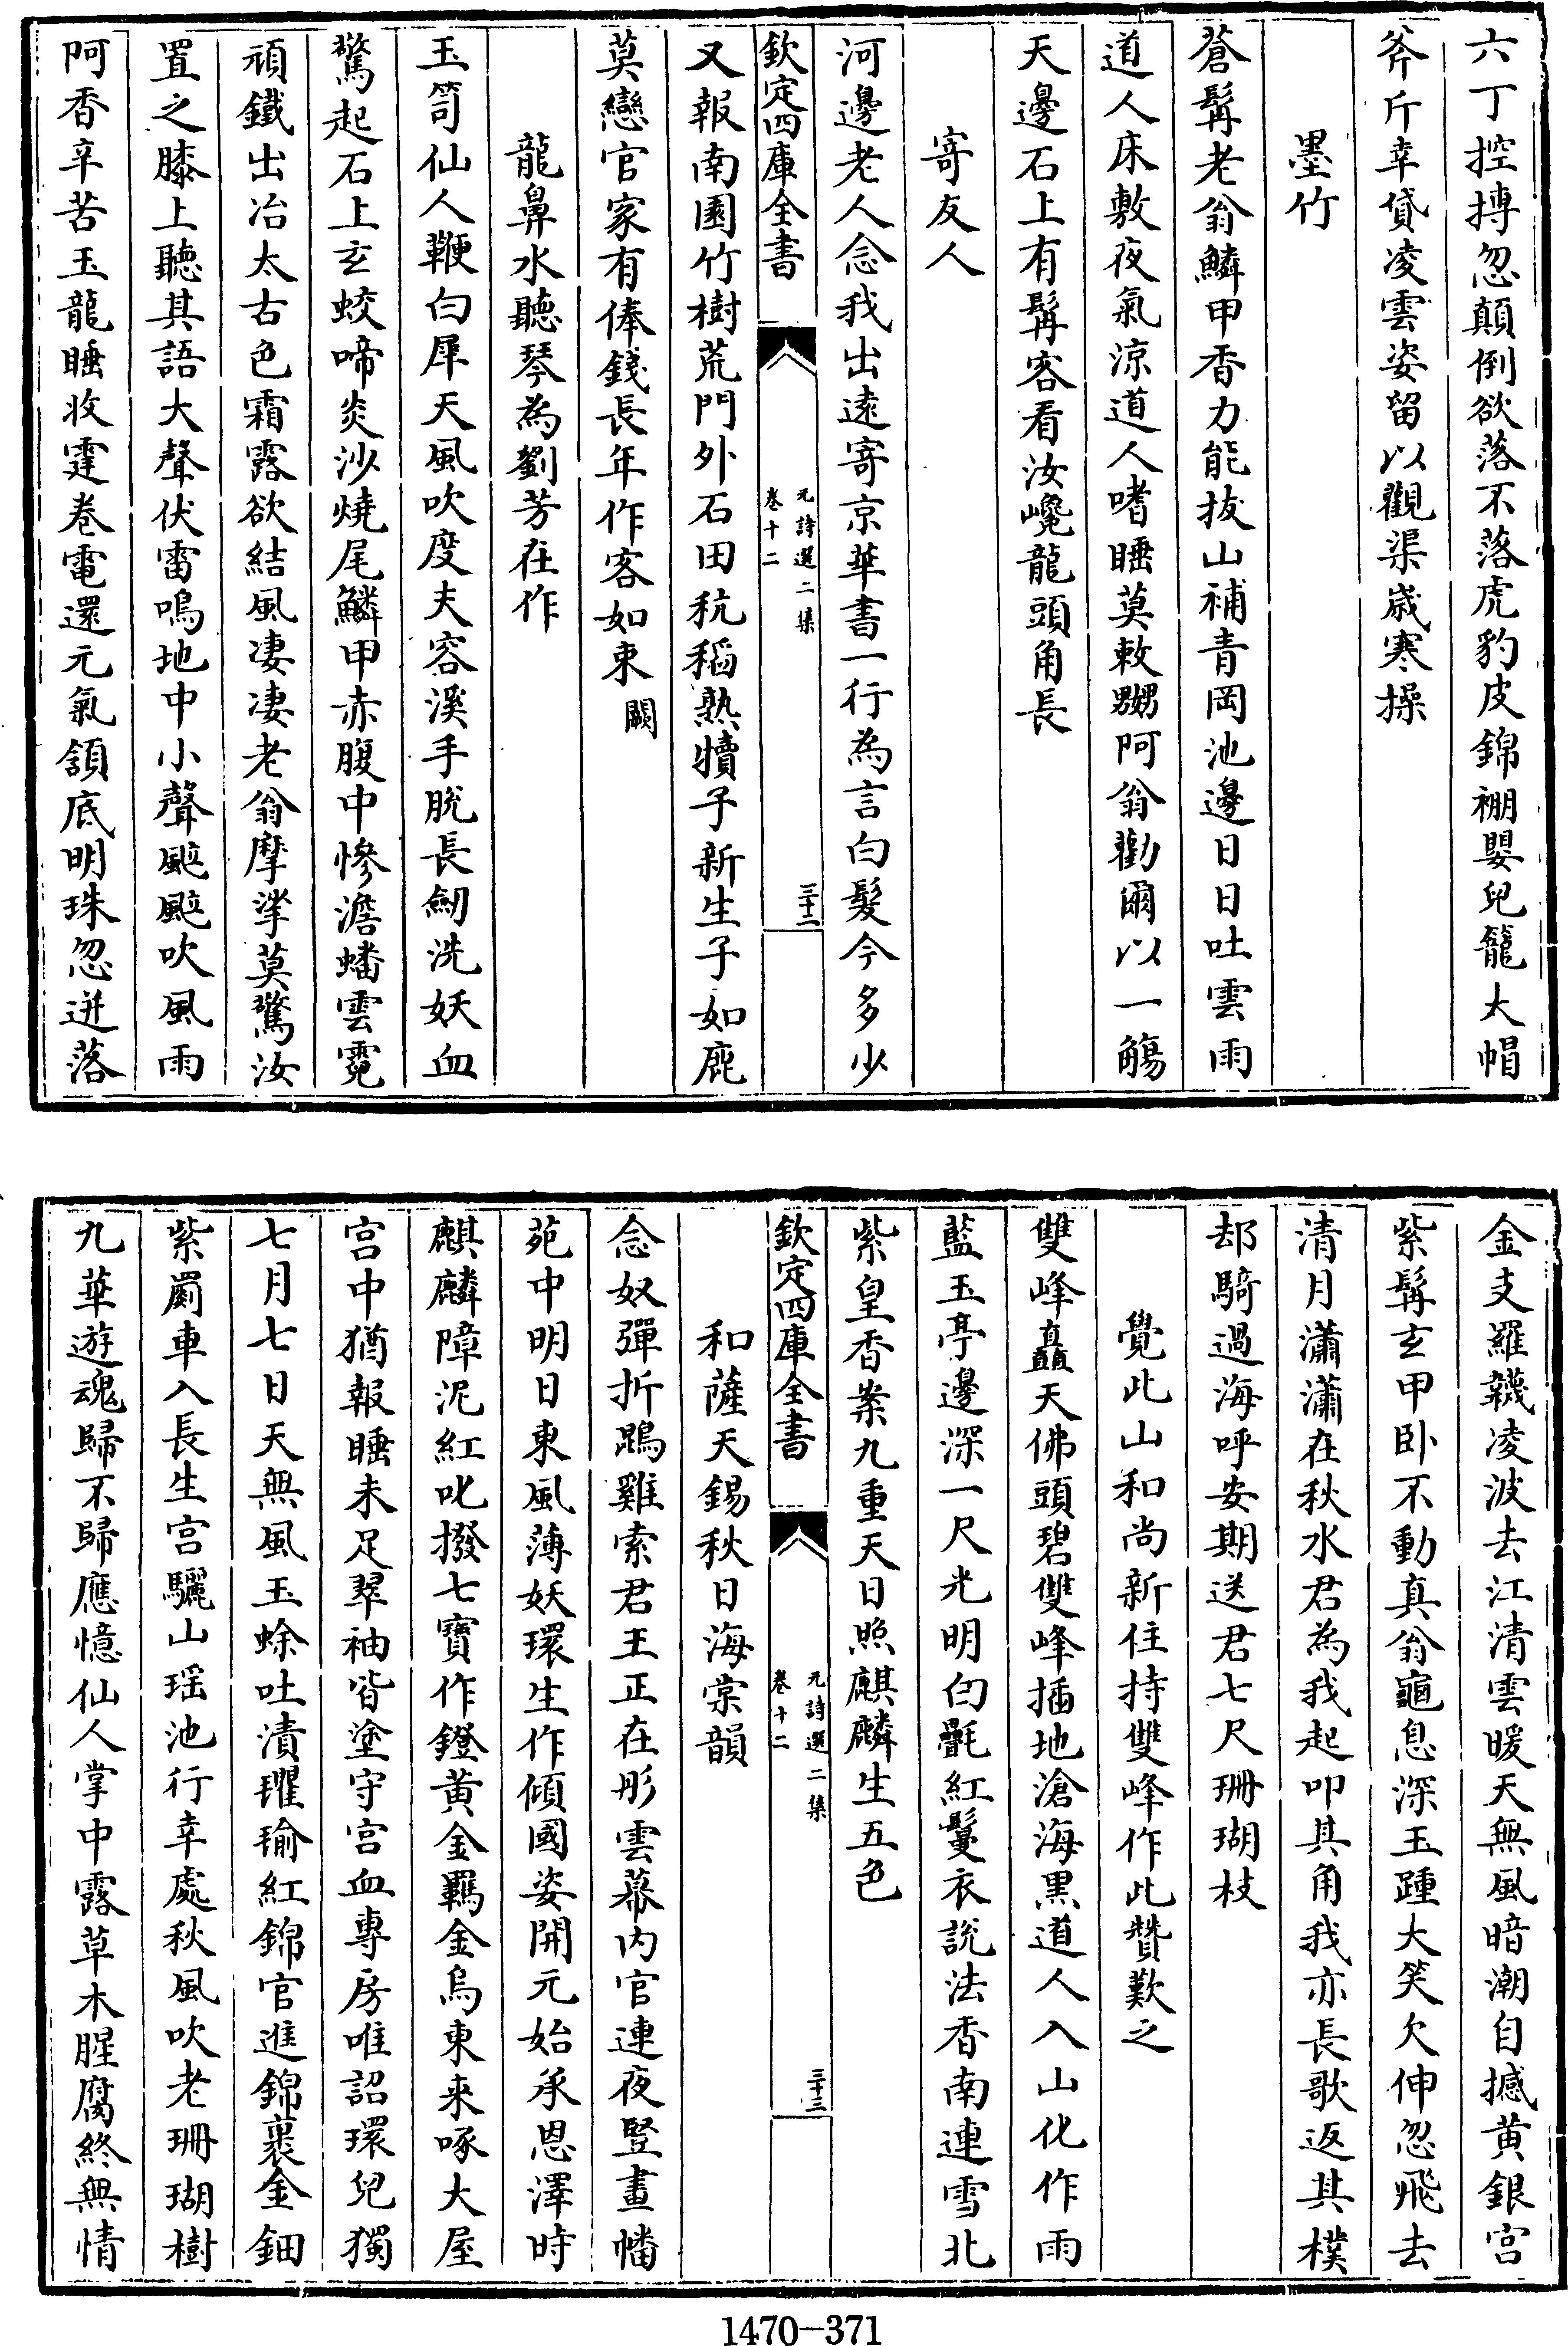 六丁控搏忽顛倒欲落不落虎豹皮錦棚嬰兒籠太帽
斧斤幸貸凌雲姿留以觀渠歲寒操
墨竹
蒼髯老翁鱗甲香力能拔山補青岡池邊日日吐雲雨
道人床敷夜氣涼道人嗜睡莫敕嬲阿翁勸爾以一觴
天邊石上有髯客看汝巉龍頭角長
寄友人
河邊老人念我出遠寄京華書一行為言白髮今多少
欽定四庫全書
元詩選二集
卷十二
三十二
又報南園竹樹荒門外石田秔稻熟犢子新生子如鹿
莫戀官家有俸錢長年作客如束闕
龍鼻水聽琴為劉芳在作
玉笥仙人鞭白犀天風吹度夫容溪手脫長劒洗妖血
驚起石上玄蛟啼炎沙燒尾鱗甲赤腹中慘澹蟠雲霓
頑鐵出冶太古色霜露欲結風凄凄老翁摩挲莫驚汝
置之膝上聽其語大聲伏雷鳴地中小聲颸颸吹風雨
阿香辛苦玉龍睡收霆卷電還元氣頷底明珠忽迸落
金支羅韈凌波去江清雲暖天無風暗潮自撼黄銀宫
紫髯玄甲卧不動真翁龜息深玉踵大笑欠伸忽飛去
清月瀟瀟在秋水君為我起叩其角我亦長歌返其樸
却騎過海呼安期送君七尺珊瑚枝
覺此山和尚新住持雙峰作此贊歎之
雙峰矗天佛頭碧雙峰插地滄海黒道人入山化作雨
藍玉亭邊深一尺光明白氎紅鬘衣説法香南連雪北
紫皇香案九重天日照麒麟生五色
欽定四庫全書
元詩選二集
卷十二
三十三
和薩天錫秋日海棠韻
念奴彈折鵾雞索君王正在彤雲幕内官連夜竪畫幡
苑中明日東風薄妖環生作傾國姿開元始承恩澤時
麒麟障泥紅叱撥七寶作鐙黄金羈金烏東来啄大屋
宫中猶報睡未足翠袖皆塗守宫血專房唯詔環兒獨
七月七日天無風玉蜍吐漬瓘瑜紅錦官進錦裹金鈿
紫罽車入長生宫驪山瑶池行幸處秋風吹老珊瑚樹
九華遊魂歸不歸應憶仙人掌中露草木腥腐終無情
1470-371